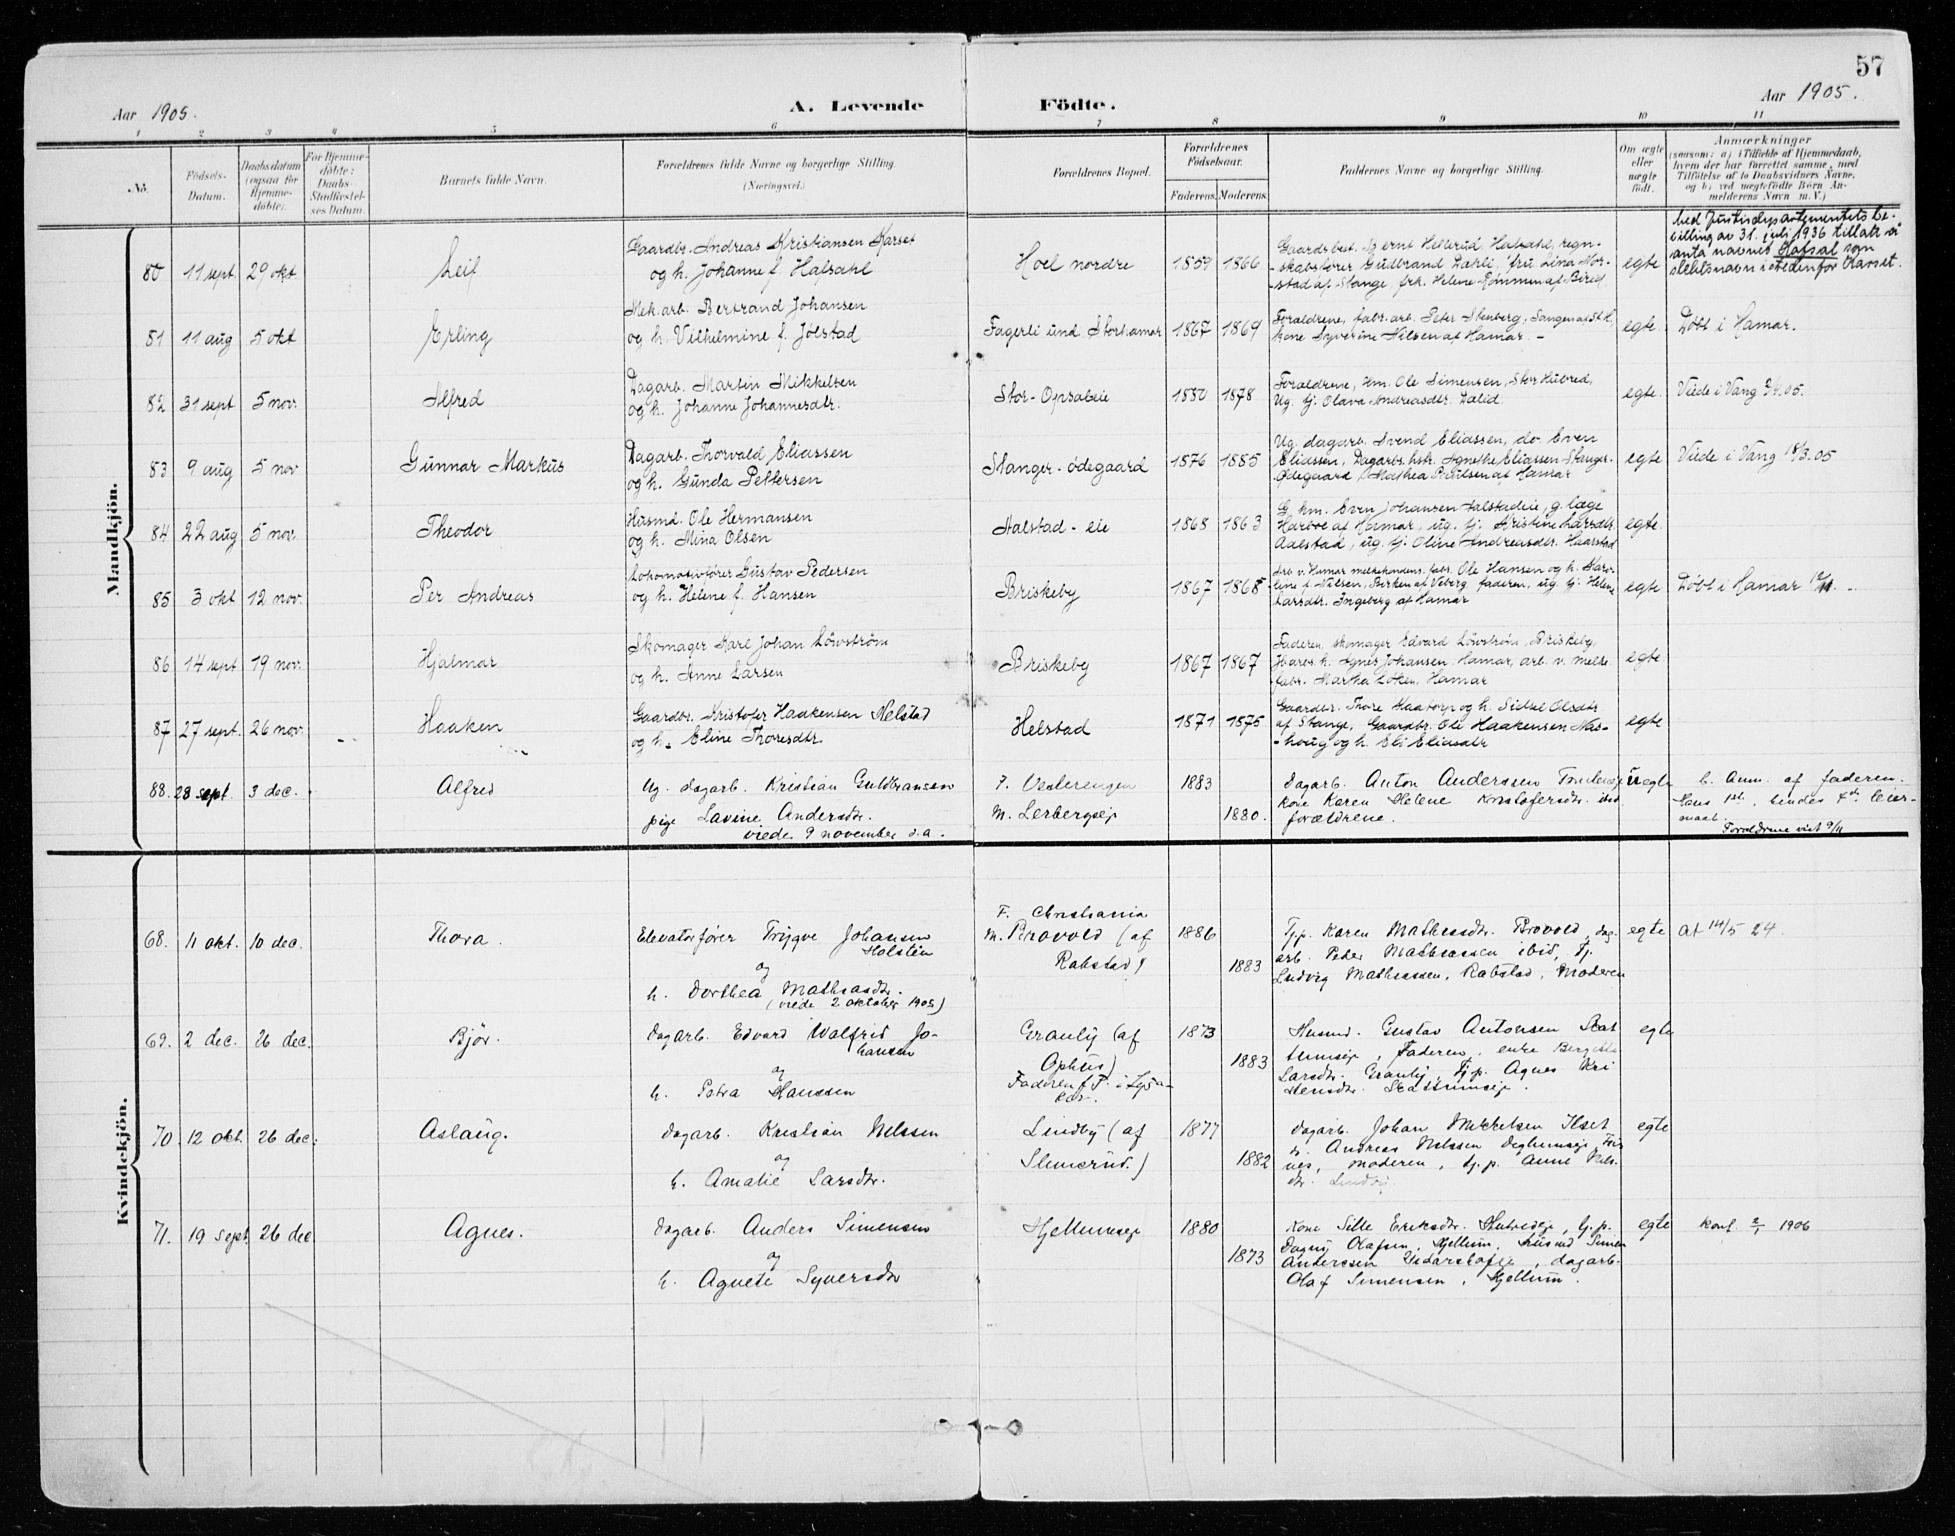 57
Aar 1905.
A. Levende Födte.
Aar 1905.
1 2 3 4 5 6 7 8 9 10 11
No.
Födsels-
Datum.
Daabsdatum
(ogsaa for
Hjemme-
döbte).
For Hjemme-
döbte:
Daabs-
Stadfæstel-
ses Datum.
Barnets fulde Navn.
Forældrenes fulde Navne og borgerlige Stilling.
(Næringsvei.)
Forældrenes Bopæl.
Forældrenes
Födselsaar.
Faderens. Moderens.
Faddernes Navne og borgerlige Stilling.
Om ægte
eller
uægte
födt.
Anmærkninger
(saasom: a) i Tilfælde af Hjemmedaab,
hvem der har forrettet samme, med
Tilföielse af to Daabsvidners Navne.
og b) ved uægtefödte Börn An-
melderens Navn m. V.)
Mandkjön.
80 11 sept 29 okt
Leif
Gaardbr. Andreas Kristiansen Karset
og h. Johanne f. Hafsahl
Hoel nordre
1859 1866
Gaardbest. Bernt Hellerud, Hafsahl, regn-
-skabsfører Gudbrand Dahli, fru Lina Mor-
-stad af Stange, frk. Helene Rømmen af Birid
egte
Ved Justisdepartementets be-
villing av 31. juli 1936 tillatt å
anta navnet Hafsal som
slektsnavn i stedenfor Karset.
81 11 aug 5 okt
Erling
Mek. arb. Bertrand Johansen
og h. Vilhelmine f. Jølstad
Fagerli und. Storhamar
1867 1869
Forældrene, fabr. arb. Peter Stenberg, Sangen af St. H,
kone Syverine Nilsen af Hamar. -
egte.
Døbt i Hamar.
82 31 sept 5 nov.
Alfred
Dagarb. Martin Mikkelsen
og h. Johanne Johannesdtr.
Stor-Opsaleie
1880 1878
Forældrene, hm. Ole Simensen, Stor Hubred,
Ug. tj. Olava Andreasdtr. Dælid.
egte.
Viede i Vang 2/4. 05.
83 9 aug 5 nov
Gunnar Markus
Dagarb. Thorvald Eliassen
og h. Gunda Pettersen
Stanger-ødegaard
1876 1885
Ug. dagarb. Svend Eliassen, do Even
Eliassen, Dagarbs. hstr. Agnethe Eliassen Stanger-
Ødegaard, Mathea Paulsen af Hamar
egte
Viede i Vang 18/3. 05
84 22 aug 5 nov.
Theodor
Husmd. Ole Hermansen
og h. Mina Olsen
Aalstad-eie
1868 1863
G. hm. Even Johansen Aalstadeie, g. læge
Harboe af Hamar, ug. tj. Kristine Larsdtr.
Aalstad, ug. tj. Oline Andreasdtr. Haarstad
egte
85 3 okt 12 nov.
Per Andreas
Lokomotivfører Gustav Pedersen
og h. Helene f. Hansen
Briskeby
1867 1868
Arb. v. Hamar melkekondens. fabr. Ole Hansen og h. Karo-
line f. Nilsen, Birken af Veberg, faderen, ug. tj. Helene
Larsdtr. Ingeberg af Hamar
egte
Døbt i Hamar 12/11.
86 14 sept 19 nov.
Hjalmar
Skomager Karl Johan Løvstrøm
og h. Anne Larsen
Briskeby
1867 1867
Faderen, skomager Edvard Løvstrøm, Briskeby,
Jbarb. h. Agnes Johansen, Hamar, arb. v. melke.
fabr. Martha Løken, Hamar
egte
87 27 sept. 26 nov.
Haaken
Gaardbr. Kristofer Haakensen Nelstad
og h. Eline Thoresdtr.
Helstad
1871 1875
Gaardbr. Thore Kaatorp og h. Sidsel Olsdtr
af Stange, Gaardbr. Ole Haakensen Nas-
-houg og h. Eli Eliasdtr
egte
88. 28 sept. 3 dec.
Alfred
Ug. dagarb. Kristian Guldbransen
pige Lavine Andersdtr.
viede 9 november d.a.
F. Vesterengen
M. Lerbergseje
1883
1880.
Dagarb. Anton Anderssen
kone Karen Helene Kristofersdtr. ibid
forældrene.
uegte
b. Anm. af faderen.
Hans 1st, hendes 1st leier-
maal.
Forældrene viet 9/11
Kvindekjön.
68. 11 okt. 10 dec.
Thora.
Elevatorfører Trygve Johansen
Holstein
og
h. Dorthea Mathiasdtr.
(viede 2 oktober 1905)
F. Christiania
M. Brovold (af
Rabstad)
1886
1883
Tj.p. Karen Mathiasdtr. Brovold, dag-
arb. Peder Mathiassen ibid, tj.
Ludvig Mathiassen, Rabstad, Moderen
egte
At 14/5 24.
69. 2 dec. 26 dec.
Bjør.
Dagarb. Edvard Walfrid Jo-
hansen
og
h. Petra Hanssen
Granly (af
Ophus)
Faderen f. T. i Lysa-
ker.
1873
1883
Husmd. Gustav Antonsen Skat
tumseje, Faderen, enke Bergitte
Larsdtr. Granly, Tj.p. Agnes Kri
stensdtr. Skattumseje.
egte
70. 12 okt. 26 dec.
Aslaug.
Dagarb. Kristian Nilssen
og
h. Amalie Larsdtr.
Lindby (af
Slemerud.)
1877
1882
Dagarb. Johan Mikkelsen Ilset
Andreas Nilssen
moderen, tj.p. Anne Nils-
dtr. Lindby
egte
71. 19 sept. 26 dec
Agnes.
Dagarb. Anders Simensen
og
h. Agnete Syversdtr
Hjellumseje
1880
1873
Kone Sille Eriksdtr. Hubredeje, tj.p.
Dagny Olafsen, Hjellum, husmd Simen
Anderssen, dagarb.
Olaf Simensen, Hjellum.
egte
konf. 2/1 1906